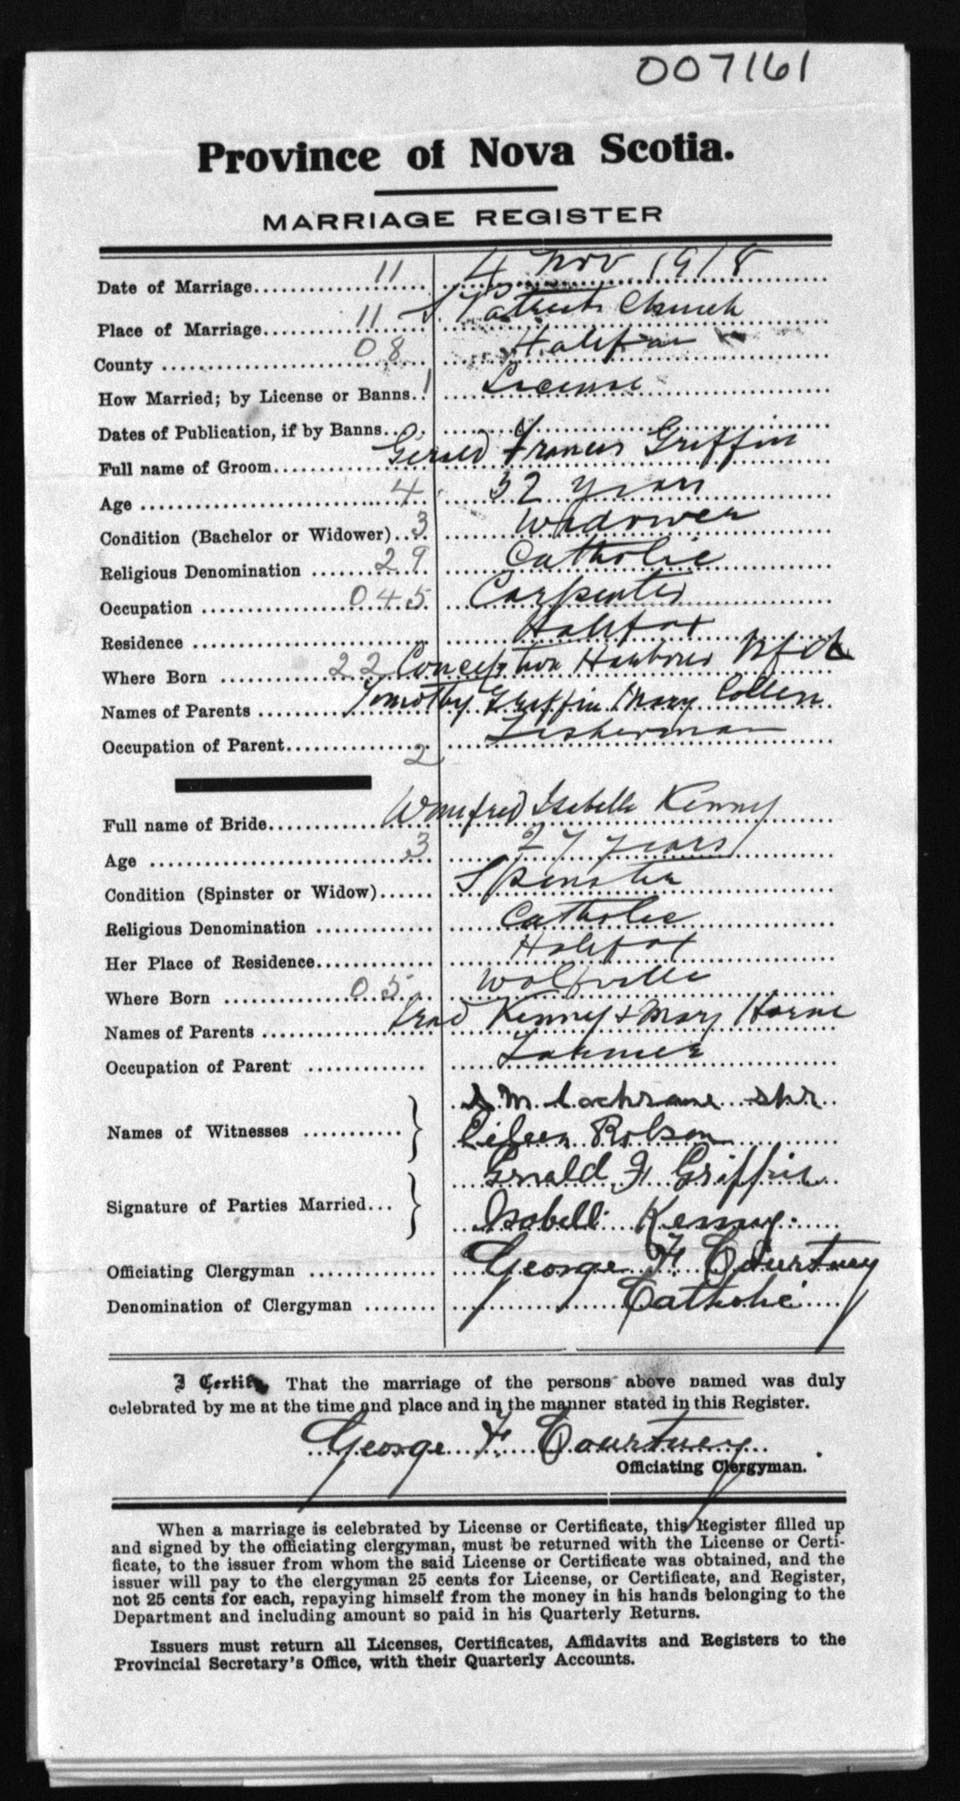 007161
Province of Nova Scotia.
MARRIAGE REGISTER
Date of Marriage 11 4 Nov 1918
Place of Marriage 11 St Patricks Church
County 08 Halifax
How Married; by License or Banns 1 License
Dates of Publication, if by Banns
Full name of Groom Gerald Francis Griffin
Age 4 32 years
Condition (Bachelor or Widower) 3 Widower
Religious Denomination 29 Catholic
Occupation 045 Carpenter
Residence Halifax
Where Born 22 Conception Harbour Nfld
Names of Parents Timothy Griffin Mary Collen
Occupation of Parent 2 Fisherman
Full name of Bride Winnifred Isabelle Kenny
Age 3 27 years
Condition (Spinster or Widow) Spinster
Religious Denomination Catholic
Her Place of Residence Halifax
Where Born 05 Wolfville
Names of Parents Kenny & Mary Horne
Occupation of Parent Farmer
Names of Witnesses } S. M. Cochrane
Eileen Robson
Signature of Parties Married } Gerald F Griffin
Isobell Kenny.
Officiating Clergyman George F. Courtney
Denomination of Clergyman Catholic
I Certify That the marriage of the persons above named was duly
celebrated by me at the time and place and in the manner stated in this Register.
George F. Courtney
Officiating Clergyman.
When a marriage is celebrated by License or Certificate, this Register filled up
and signed by the officiating clergyman, must be returned with the License or Certi-
ficate, to the issuer from whom the said License or Certificate was obtained, and the
issuer will pay to the clergyman 25 cents for License, or Certificate, and Register,
not 25 cents for each, repaying himself from the money in his hands belonging to the
Department and including amount so paid in his Quarterly Returns.
Issuers must return all Licenses, Certificates, Affidavits and Registers to the
Provincial Secretary's Office, with their Quarterly Accounts.